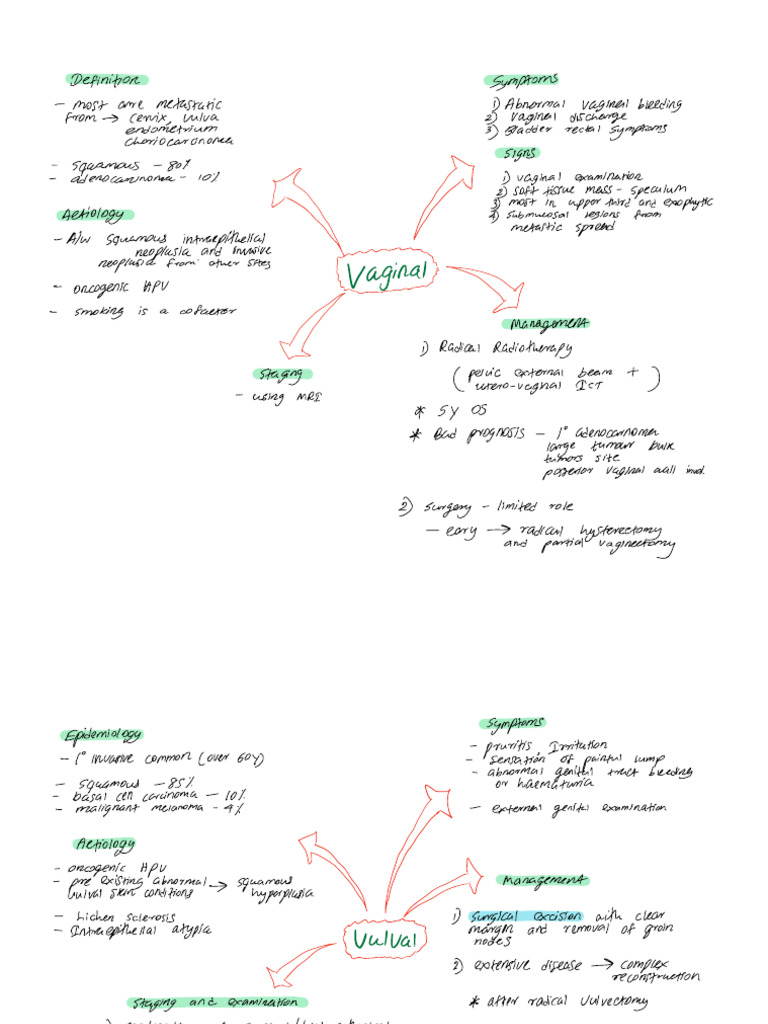 Definition
- most are metastatic
from → cervix, vulva
endometrium
choriocarcinoma
- squamous - 80%
- adenocarcinoma - 10%
Aetiology
- A/w squamous intraepithelial
neoplasia and invasive
neoplasia from other sites
- oncogenic HPV
- smoking is a cofactor
Symptoms
1) Abnormal vaginal bleeding
2) vaginal discharge
3) Bladder rectal symptoms
Signs
1) vaginal examination
2) soft tissue mass - speculum
3) most in upper third and exophytic
4) submucosal regions from
metastic spread
Vaginal
Staging
- using MRI
Management
1) Radical Radiotherapy
(pelvic external beam +
utero-vaginal ICT)
* 5Y OS
* Bad prognosis - 1° adenocarcinoma
large tumour bulk
tumors site
posterior vaginal wall invol.
2) surgery - limited role
- eary → radical hysterectomy
and partial vaginectomy
Epidemiology
- 1° invasive common (over 60Y)
- squamous - 85%
- basal cell carcinoma - 10%
- malignant melanoma - 4%
Aetiology
- oncogenic HPV
- pre existing abnormal → squamous
vulval skin conditions hyperplasia
- Lichen sclerosis
- Intraepithelial atypia
Symptoms
- pruritis, Irritation
- sensation of painful lump
- abnormal genital tract bleeding
or haematuria
- external genital examination
Vulval
Management
1) surgical excision with clear
margin and removal of groin
nodes
2) extensive disease → complex
reconstruction
* after radical vulvectomy
Staging and examination